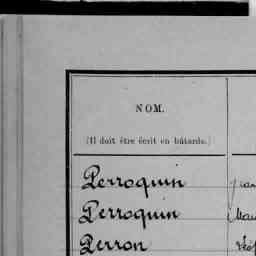 NOM.
(Il doit être écrit en bâtarde.)
Perroquin
Perroquin
Perron